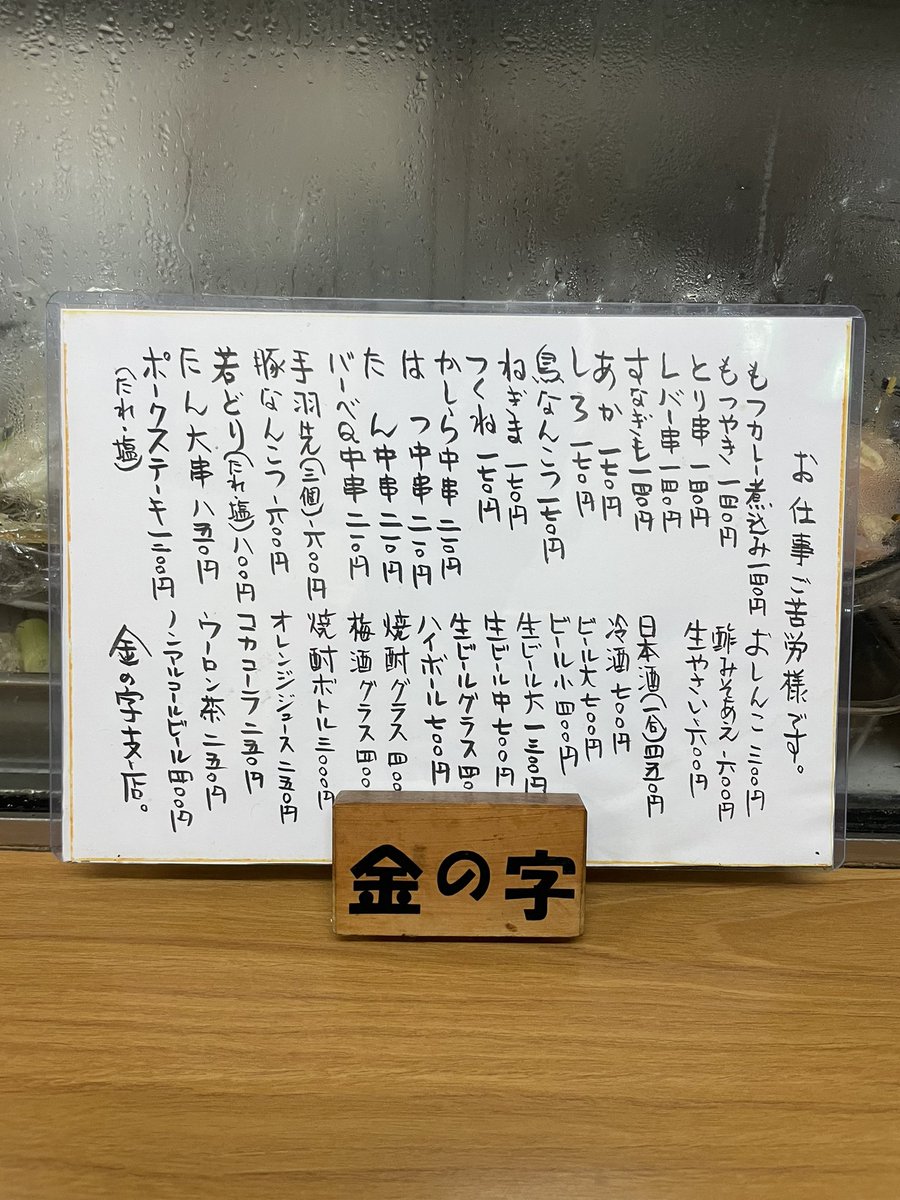 お仕事ご苦労様です。
もつカレー煮込み一四〇円
もつやき一四〇円
とり串一四〇円
レバー串一四〇円
すなぎも一四〇円
あか一七〇円
しろ一七〇円
鳥なんこつ一七〇円
ねぎま一七〇円
つくね一七〇円
かしら中串二一〇円
はつ中串二一〇円
たん中串二一〇円
バーベQ中串二一〇円
手羽先(三個)六〇〇円
豚なんこつ六〇〇円
若どり(たれ塩)八〇〇円
たん大串八五〇円
ポークステーキ一二〇〇円
(たれ・塩)
おしんこ三〇〇円
酢みそあえ六〇〇円
生やさい六〇〇円
日本酒(一合)四五〇円
冷酒七〇〇円
ビール大七〇〇円
ビール小四〇〇円
生ビール大一三〇〇円
生ビール中七〇〇円
生ビールグラス四〇
ハイボール七〇〇円
焼酎グラス四〇〇
梅酒グラス四〇〇
焼酎ボトル三〇〇〇円
オレンジジュース二五〇円
コカコーラ二五〇円
ウーロン茶二五〇円
ノンアルコールビール四〇〇円
金の字支店。
金の字